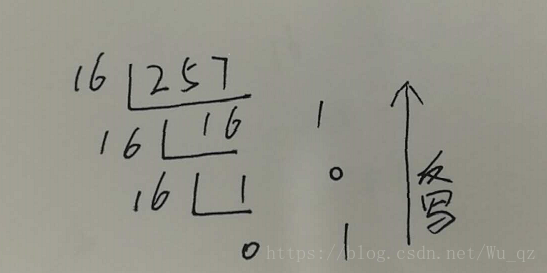 16 257
16 16 1
16 1 0
0 1
反写
https://blog.csdn.net/Wu_qz